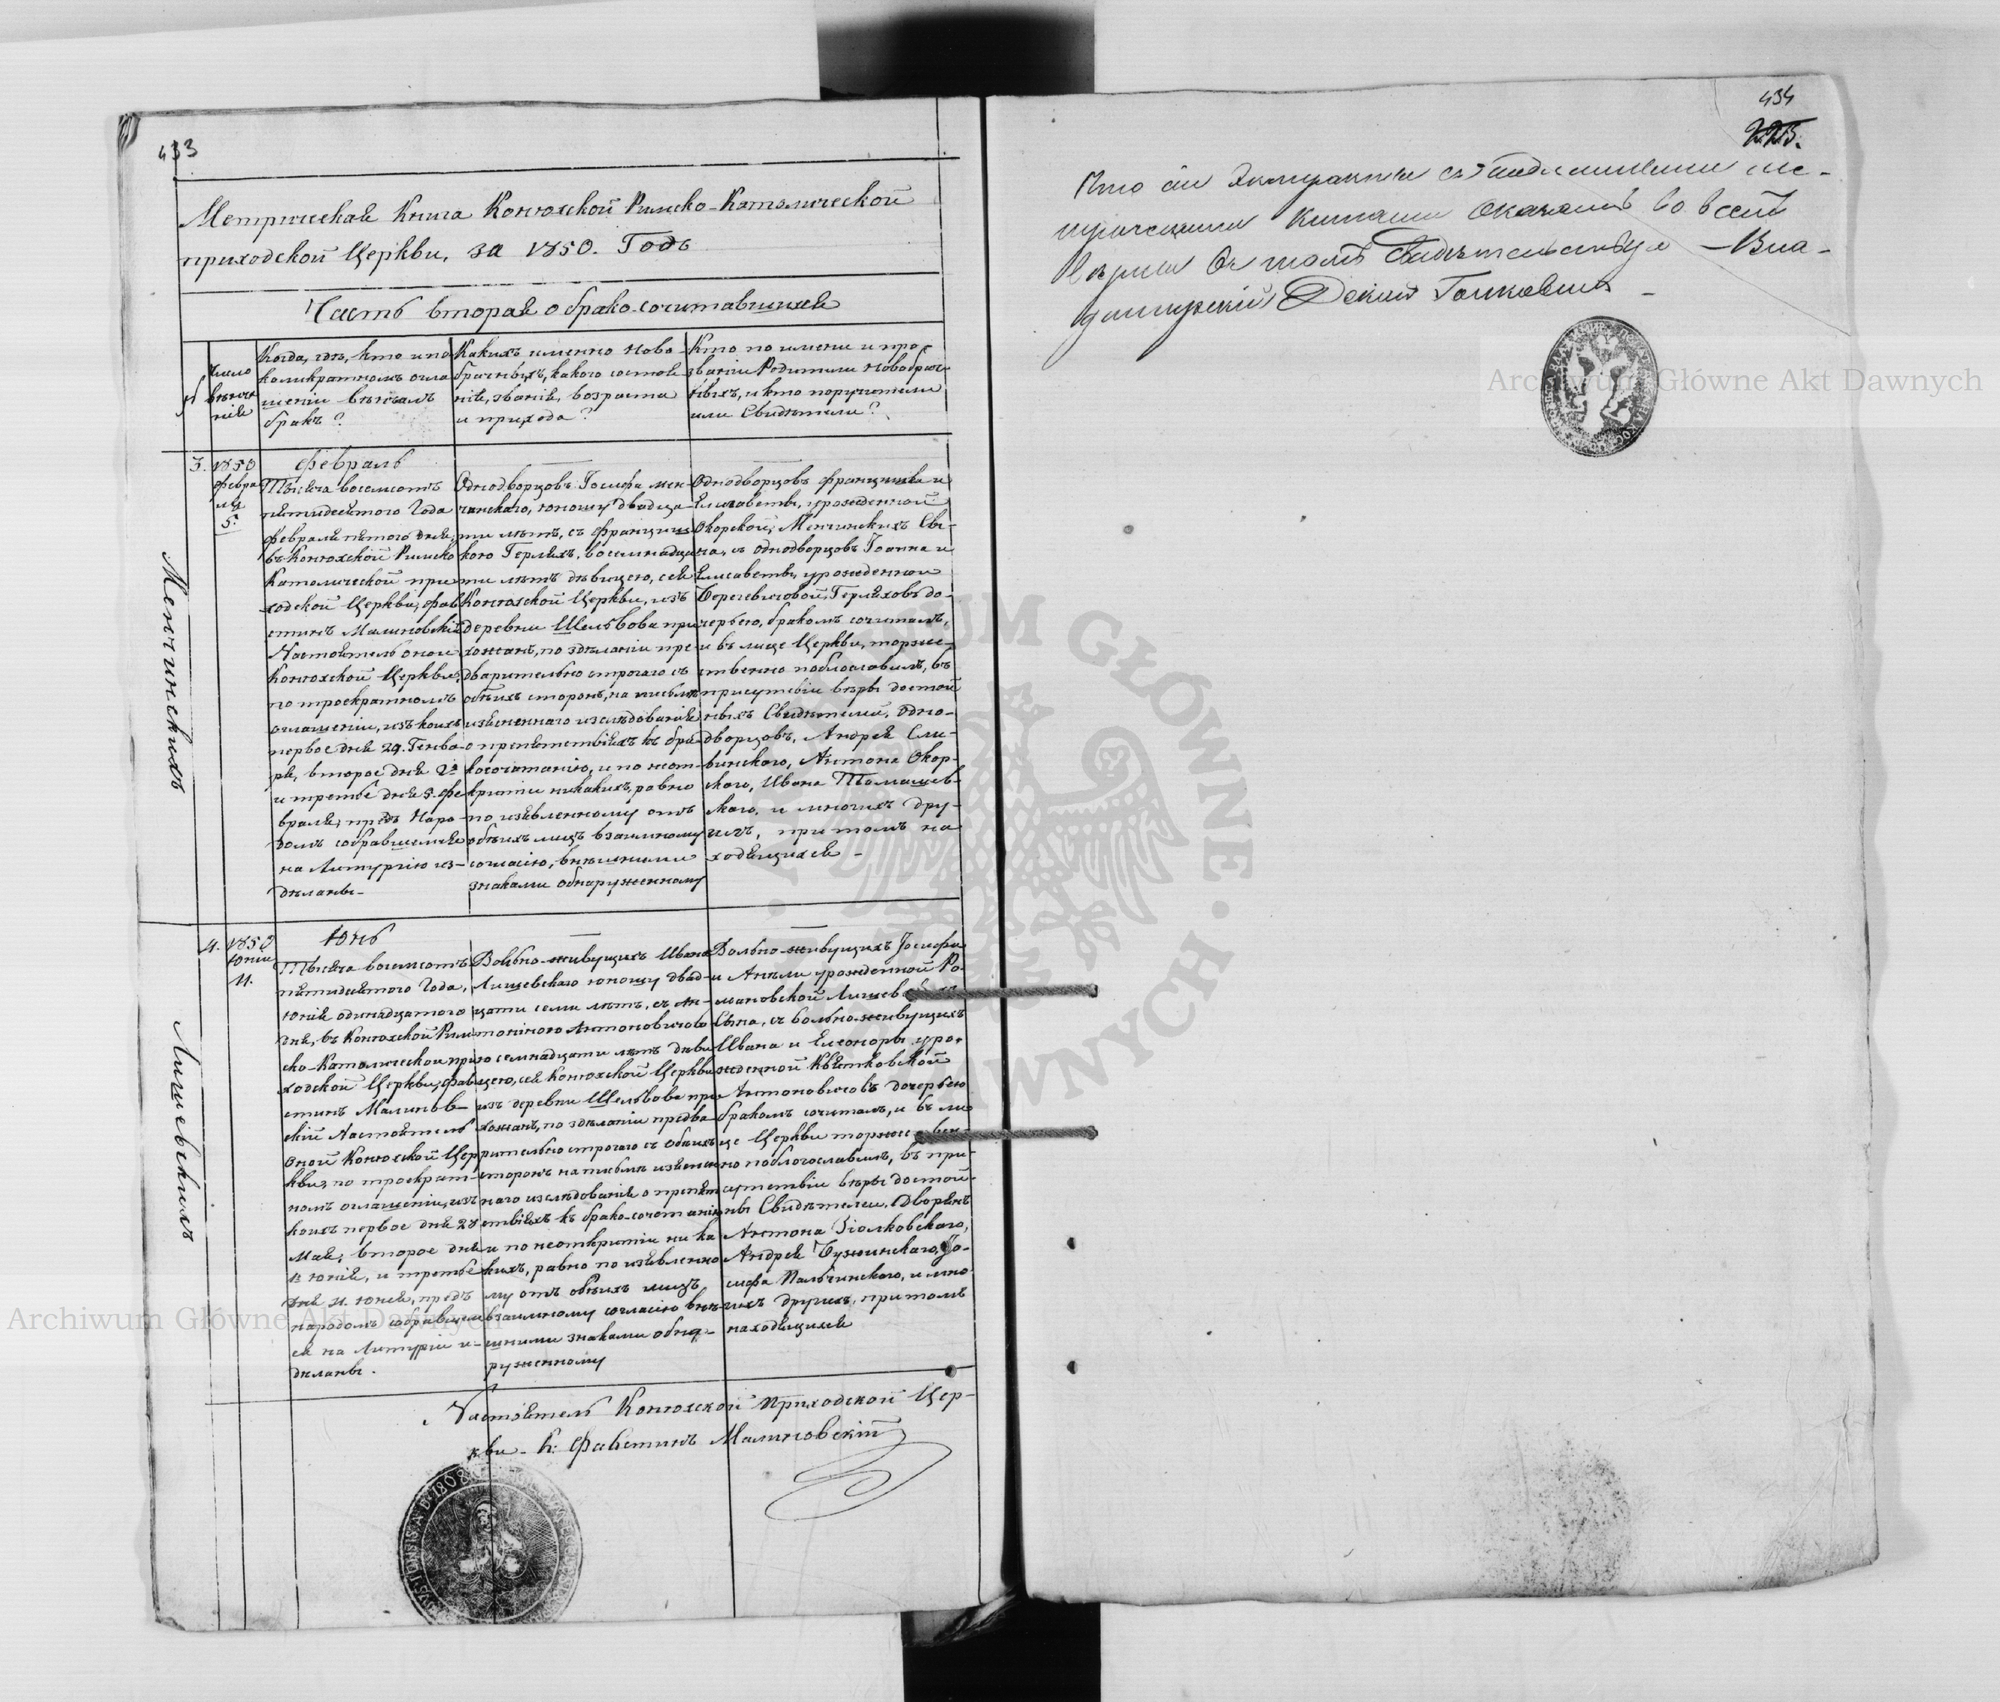 433
Метрическая Книга Конюхской Римско-Католической
приходской Церкви, за 1850. Годъ
Часть вторая о брако-сочитавшихся
№
Число
вѣнча
нія
Когда, гдѣ, кто и по
коликратномъ огла
шеніи вѣнчалъ
бракъ?
Какихъ именно ново-
брачныхъ, какого состоя
нія, званія, возраста
и прихода?
Кто по имени и про-
званіи Родители новобрач-
ныхъ, и кто поручители
или Свидѣтели?
Менчинскихъ
3.
1850
Февра
ля
5.
Февраль
Тысяча восемсотъ
пятидесятого Года
февраля пятого дня,
въ Конюхской Римско
Католической при
ходской Церкви, Фав
стинъ Малиновскій
Настоятель оной
Конюхской Церкви,
по троекратномъ
оглашеніи, изъ коихъ
первое дня 29. Генва-
ря, второе дня 2º
и третье дня 5. Фе
враля, предъ Наро-
домъ собравшемся
на Литургію из-
дѣланы-
Однодворцовъ Іосифа Мен-
чинскаго, юношу двадца
ти лѣтъ, съ Францишъ
кою Герляхъ, восемнадца
ти лѣтъ дѣвицею, сея
Конюхской Церкви, изъ
деревни Шельвова при
хожанъ, по здѣланіи пре
дварительно строгаго съ
обѣихъ сторонъ, на письмѣ
изъясненнаго изслѣдованія
о препятствіяхъ къ бра
косочитанію, и по неот-
крытіи никакихъ, равно
по изъявленному отъ
обѣихъ лицъ взаимному
согласію, внѣшними
знаками обнаруженному
Однодворцовъ Францишка и
Елисаветы, урожденной
Окорской, Менчинскихъ Сы-
на, съ однодворцовъ Іоанна и
Елисаветы, урожденной
Герляховъ до-
черью, бракомъ сочиталъ,
и въ лице Церкви, торже-
ственно поблославилъ, въ
присутсвіи вѣры достой
ныхъ Свидѣтелей, одно-
дворцовъ, Андрея Сли-
винского, Антона Окор-
ского, Ивана Томашев-
ского, и многихъ дру-
гихъ, при томъ на
ходящихся -
Лишевскихъ
4.
1850
Юнія
11.
Юнь
Тысяча восемсотъ
пятидесятого Года,
Юнія одинадцатого
дня, въ Конюхской Рим
ско-Католической при
ходской Церкви, Фав
стинъ Малинов-
скій Настоятель
оной Конюхской Цер
кви, по троекрат-
номъ оглашеніи, изъ
коихъ первое дня 28
Мая, второе дня
Юнія, и третье
дня 11. Юнія, предъ
народомъ собравшем
ся на Литургіи и-
дѣланы.
Вольно-живущихъ Ивана
Лишевскаго юношу двад-
цати семи лѣтъ, съ Ан-
тониною Антоновичово
ю семнадцати лѣтъ дѣви
цею, сея Конюхской Церкви
изъ деревни Шельвова при
хожанъ, по здѣланіи предва
рительно строгаго съ обѣихъ
сторонъ на письмѣ изъяснен
наго изслѣдованія о препят
ствіяхъ къ брако-сочетанію
и по неоткрытіи ни ка
кихъ, равно по изъявленно
му отъ обѣихъ лицъ
взаимному согласію внѣ
шними знаками обна-
руженному
Вольно-живущихъ Іосифа
и Анели урожденной Ро-
мановской Лишев
Сына, съ вольно-живущихъ
Ивана и Елеоноры уро-
жденной Квятковской
Антоновичовъ дочерью
бракомъ сочиталъ, и въ ли
це Церкви торжествен-
но поблогославилъ, въ при-
сутствіи вѣры достой-
ны Свидѣтелеи, Дворянъ
Антона Зіолковскаго,
Андрея Бужинскаго, Іо-
сифа Пальчинского, и мно
гихъ другихъ, при томъ
находящихся
Настоятель Конюхской Приходской Цер-
кви К: Фавстинъ Малиновскій
434
225.
Что сіи Экстракты съ подлинными ме-
трическими книгами оказались во всемъ
вѣрны въ томъ Свидѣтельствую - Вла-
димірскій Деканъ
Archiwum Główne Akt Dawnych
Archiwum Główne Akt Dawnych
ARCHIWUM GŁÓWNE AKT DAWNYCH